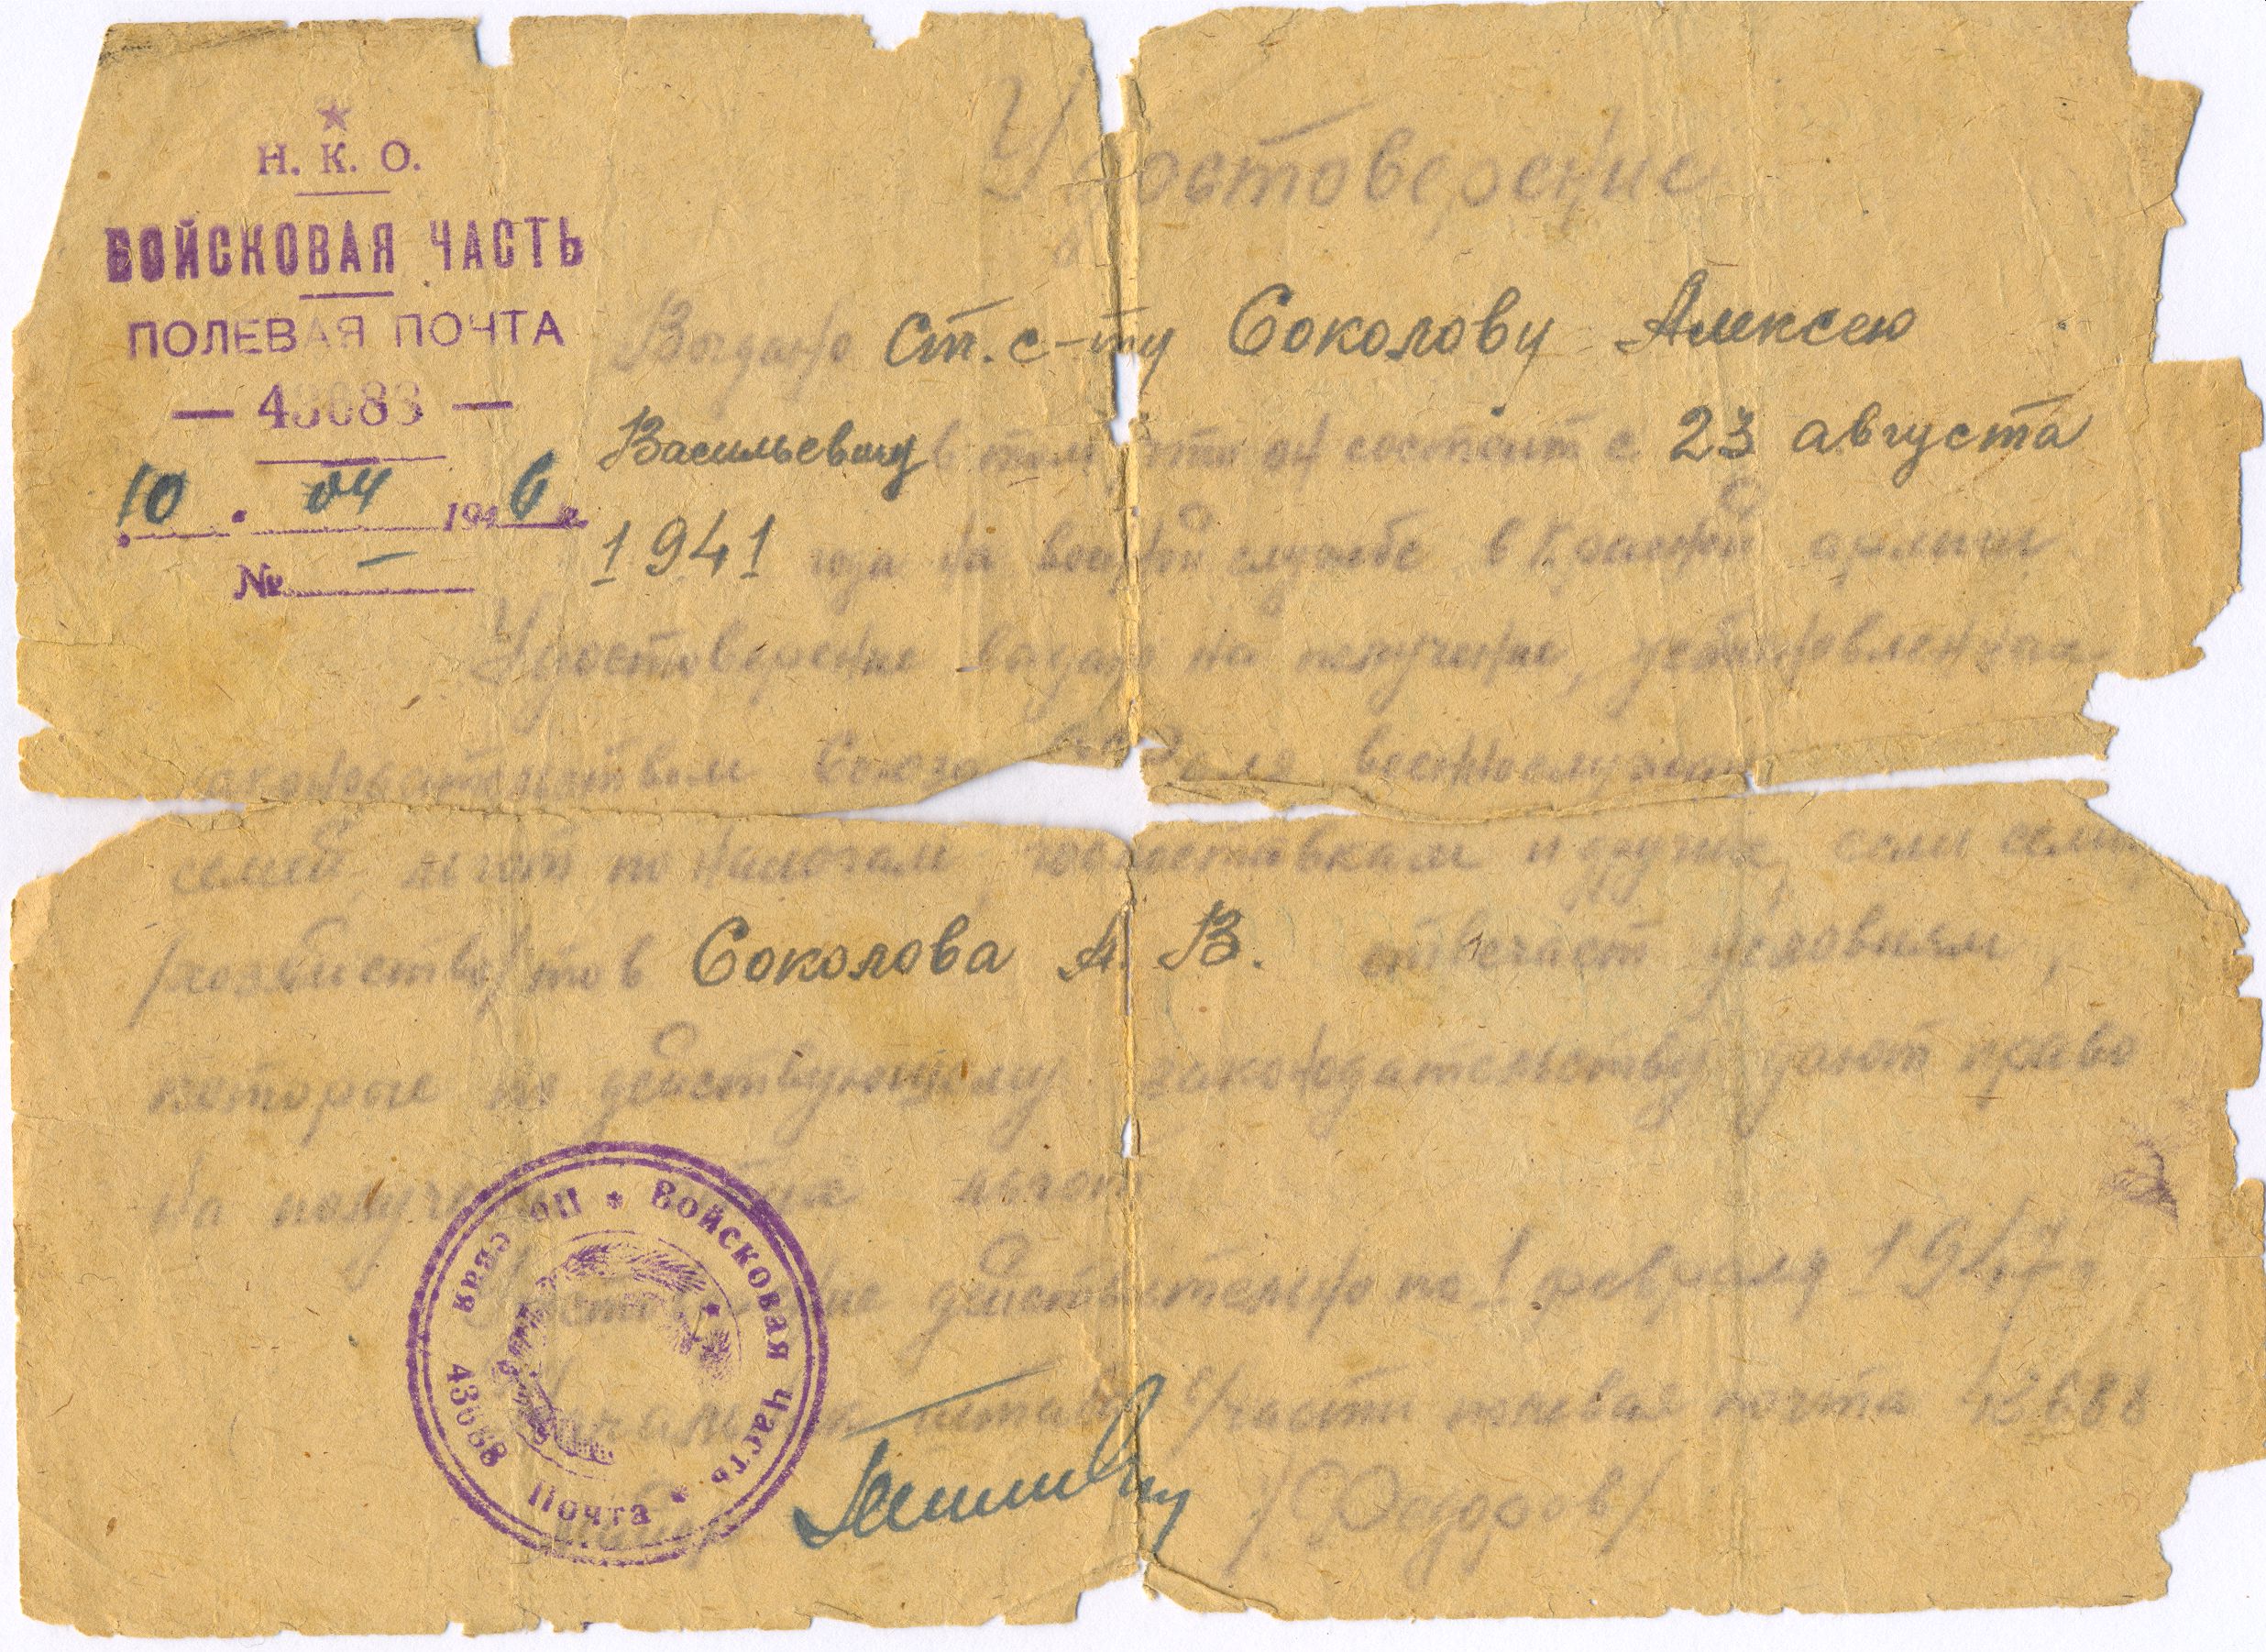 Н. К. О.
ВОЙСКОВАЯ ЧАСТЬ
ПОЛЕВАЯ ПОЧТА
— 43088 —
10 . 04 1946 г.
№ —
Удостоверение
Выдано Ст. с-ту Соколову Алексею
Васильевичу в том что он состоит с 23 августа
1941 года на военной службе в Красной армии
Удостоверение выдано на получение, установленных
законодательством Союза ССР для военнослужащих
семей, льгот по налогам, госпоставкам и другие, если семья
/хозяйство/ тов Соколова А. В. отвечает условиям,
которые по действующему законодательству дают право
на получение этих льгот
Удостоверение действительно по 1 февраля 1947 г
Начальник штаба в/части полевая почта 43088
/Федоров/
Войсковая Часть * Полевая Почта * 43088